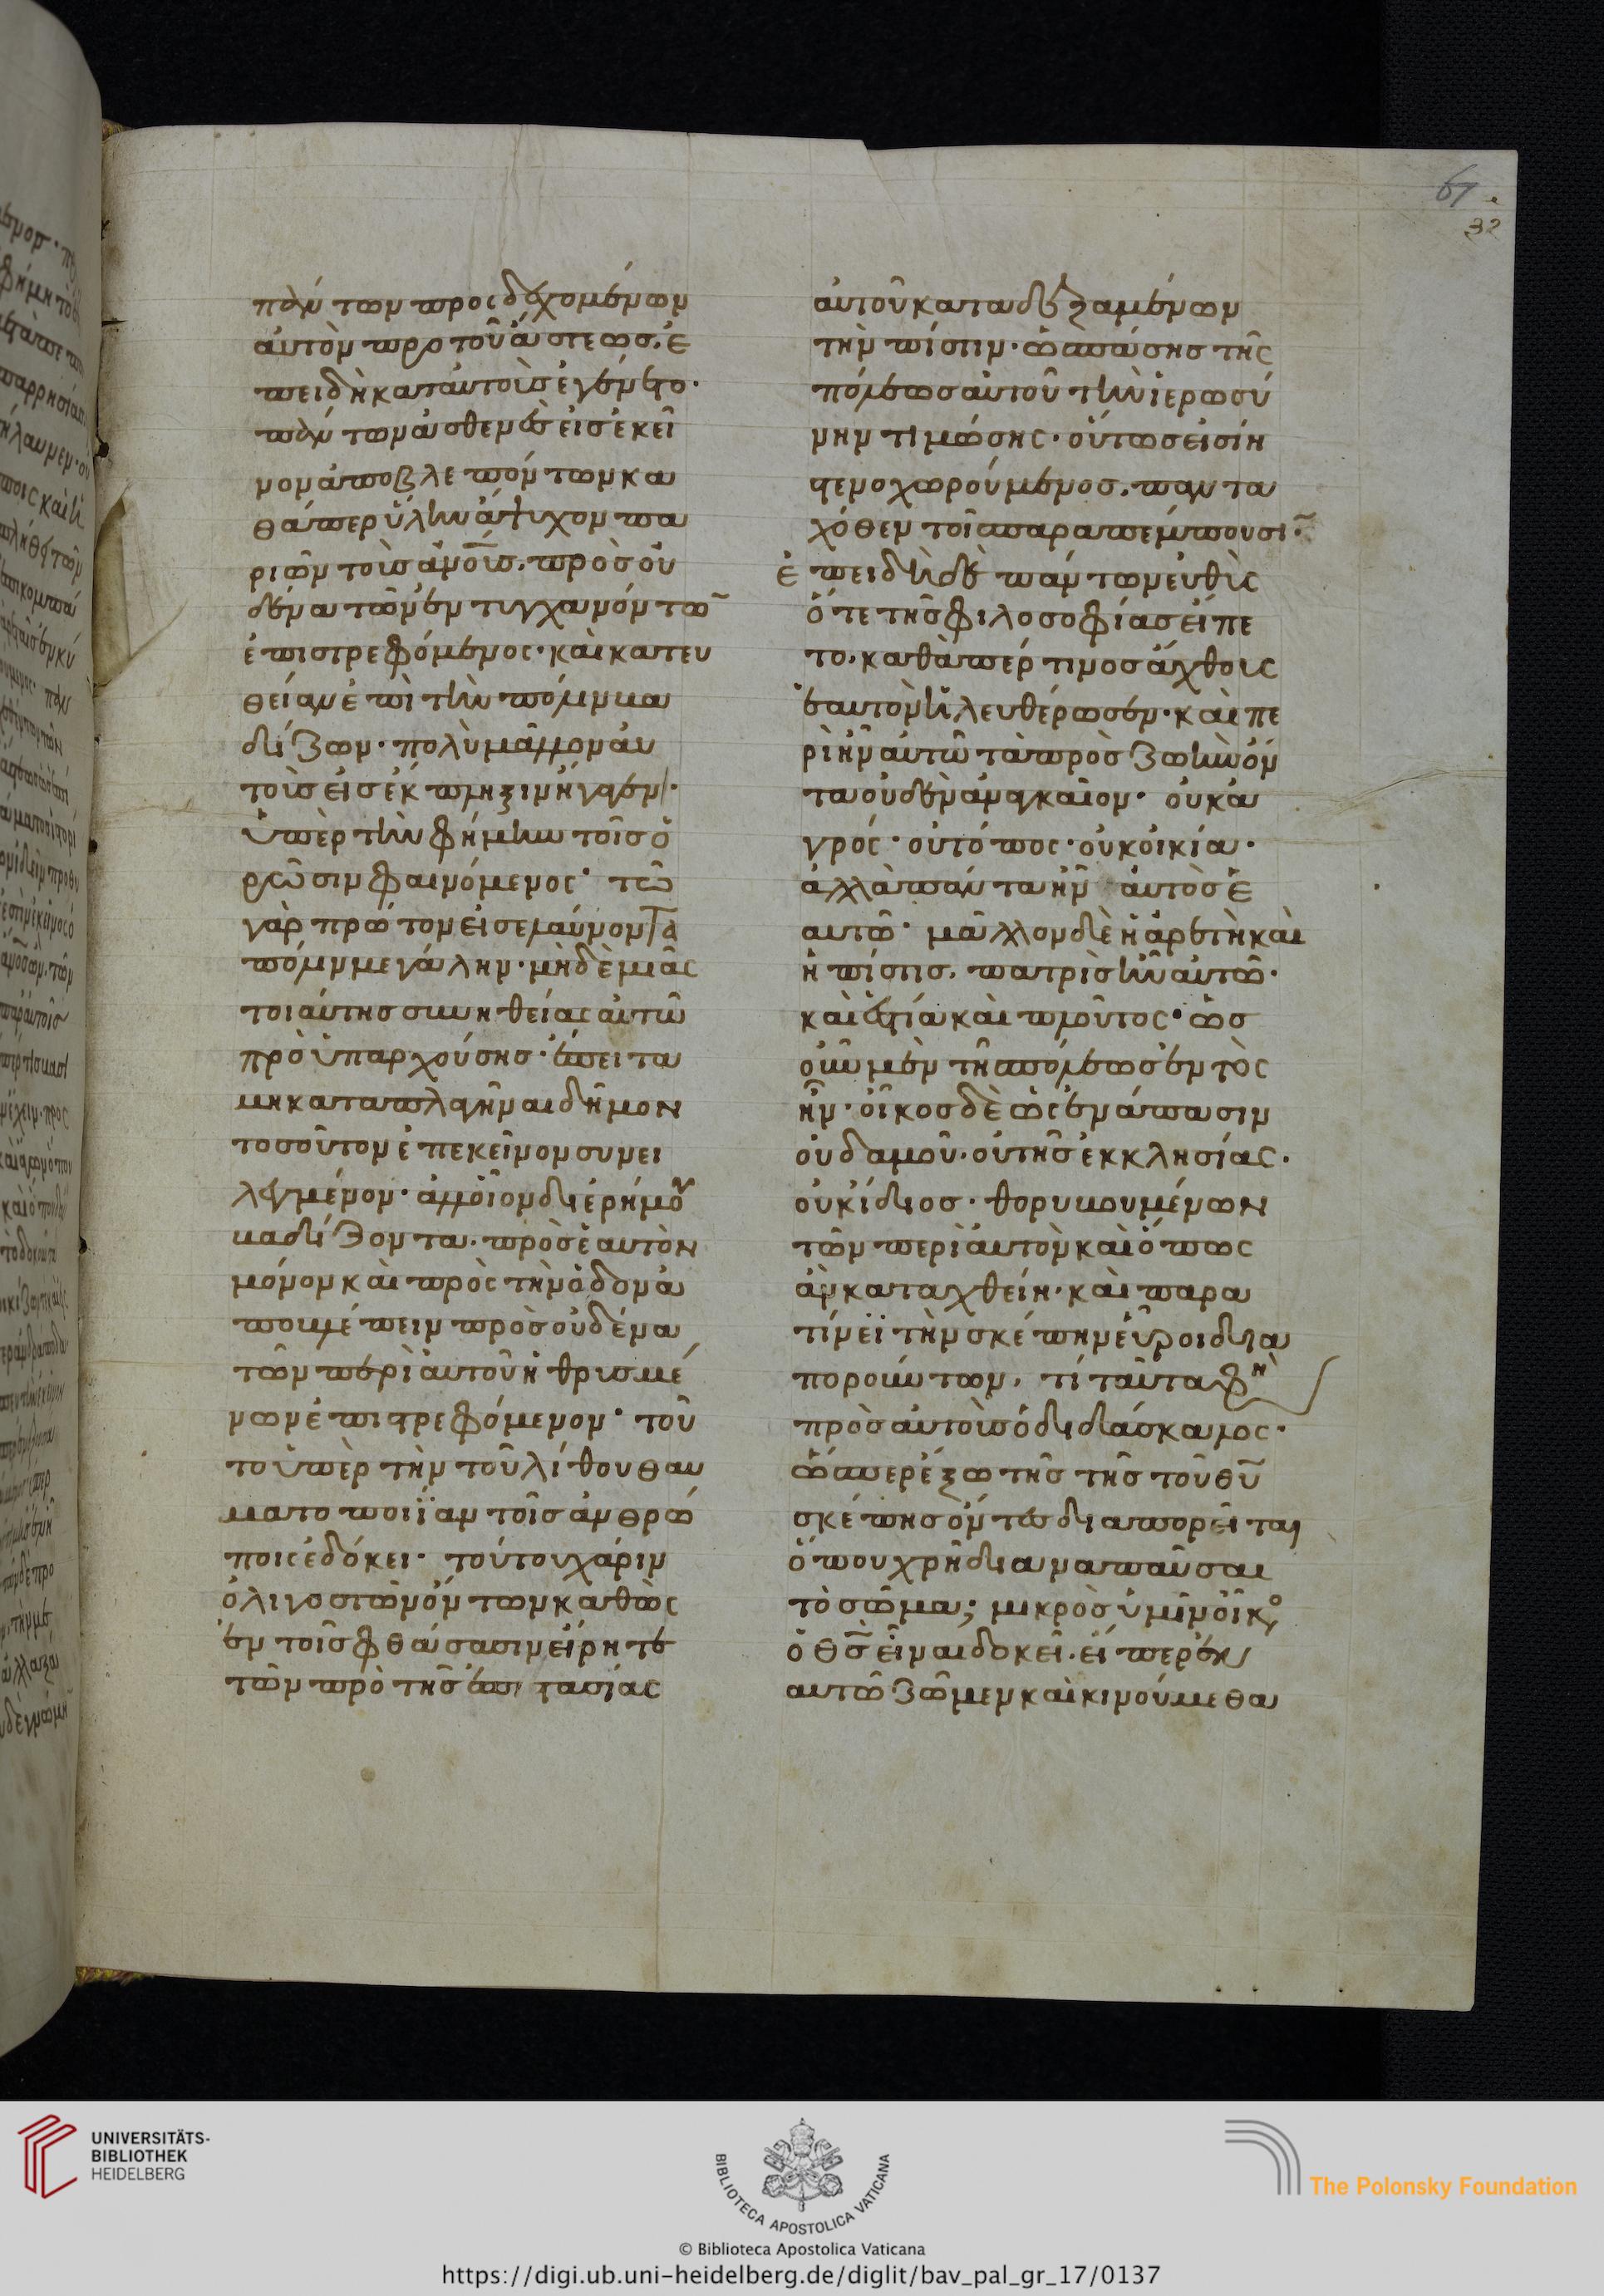 πάντων προσδεχομένων
αὐτὸν προ τοῦ ἄστεωσ. ἐ
πειδὴ κατ αὐτοὺσ ἐγένετο·
πάντων ἀσθενῶσ εἰσ ἐκεῖ
νον ἀποβλεπόντων κα
θάπερ ὕλην ἄψυχον πα
ριὼν τοὺσ ἀνο̅υσ. πρὸσ οὐ
δένα τῶν ἐντυγχανόντω̅
ἐπιστρεφόμενος· καὶ κατευ
θείαν ἐπὶ τὴν πόλιν βα
δίζων· πολὺ μᾶλλον αὐ
τοὺσ εἰσ ἔκπληξιν ἤγαγεν·
ὑπὲρ τὴν φήμην τοῖσ ὁ
ρῶσιν φαινόμενος· τῶ
γὰρ πρῶτον εἰσελαύνοντα
πόλιν μεγάλην· μὴδὲμιᾶς
τοιαύτησ συνηθείας αὐτῶ
πρὸϋπαρχούσησ· ἔπειτα
μὴ καταπλαγῆναι δῆμον
τοσοῦτον ἐπ ἐκεῖνον συνει
λεγμένον· ἀλλοῖον δι ἐρήμου
βαδίζοντα· πρὸσ ἑαυτὸν
μόνον καὶ πρὸς τὴν ὁδον ἀ
ποβλέπειν πρὸσ οὐδένα
τῶν περὶ αὐτοῦ ἠθρισμέ
νων ἐπιστρεφόμενον· τοῦ
το ὑπὲρ τὴν τοῦ λίθου θαυ
ματοποιΐαν τοῖσ ἀνθρώ
ποις ἐδόκει· τούτου χάριν
ὀλιγοστῶν ὄντων καθὼς
ἐν τοῖσ φθάσασιν εἴρηται
τῶν πρὸ τῆσ ἐπιστασίας
αὐτοῦ καταδεξαμένων
τὴν πίστιν· ὡσ πάσησ τῆς
πόλεωσ αὐτοῦ τὴν ἱερωσύ
νην τιμώσης· οὕτωσ εἰσίη
στενοχωρούμενοσ. παντα
χόθεν τοῖσ παραπέμπουσι̅·
ἐπειδὴ δὲ πάντων εὐθὺς
ὅτε τῆσ φιλοσοφίασ εἴπε
το· καθάπέρ τινοσ ἄχθους
ἑαυτὸν ἠλευθέρωσεν· καὶ πε
ρὶ ἦν αὐτῶ τὰ πρὸσ ζωὴν ὄν
τα οὐδὲν ἀναγκαῖον· οὐκ ἀ
γρός· οὐ τόπος· οὐκ οἰκία·
ἀλλὰ πάντα ἦν αὐτὸσ ἑ
αυτῶ· μᾶλλον δὲ ἡ ἀρετὴ καὶ
ἡ πίστισ. πατρὶσ ἦν αὐτῶ·
καὶ ἑστία καὶ πλοῦτος· ὡσ
οὖν μὲν τῆσ πόλεωσ ἐντὸς
ἦν· οἶκοσ δὲ ὡς ἐν ἅπασιν
οὐδαμοῦ· οὐ τῆσ ἐκκλησίας·
οὐκ ἴδιοσ· θορυβουμένων
τῶν περὶ αὐτὸν καὶ ὅπως
ἂν καταχθείη· καὶ παρα
τίνι τὴν σκέπην εὕροι δια
πορούντων. τί ταῦτα φη
πρὸσ αὐτοὺσ ὁ διδάσκαλος·
ὥσπερ ἔξω τῆσ τῆσ τοῦ θυ̅
σκέπησ ὄντεσ διαπορεῖται
ὅπου χρῆ διαναπαῦσαι
τὸ σῶμα; μικρὸσ ὑμῖν οἶκος
ὁ θσ̅ εἶναι δοκεῖ. εἴπερ ἐν
αυτῶ ζῶμεν καὶ κινούμεθα
61
32
UNIVERSITÄTS-
BIBLIOTHEK
HEIDELBERG
BIBLIOTECA APOSTOLICA VATICANA
The Polonsky Foundation
© Biblioteca Apostolica Vaticana
https://digi.ub.uni-heidelberg.de/diglit/bav_pal_gr_17/0137